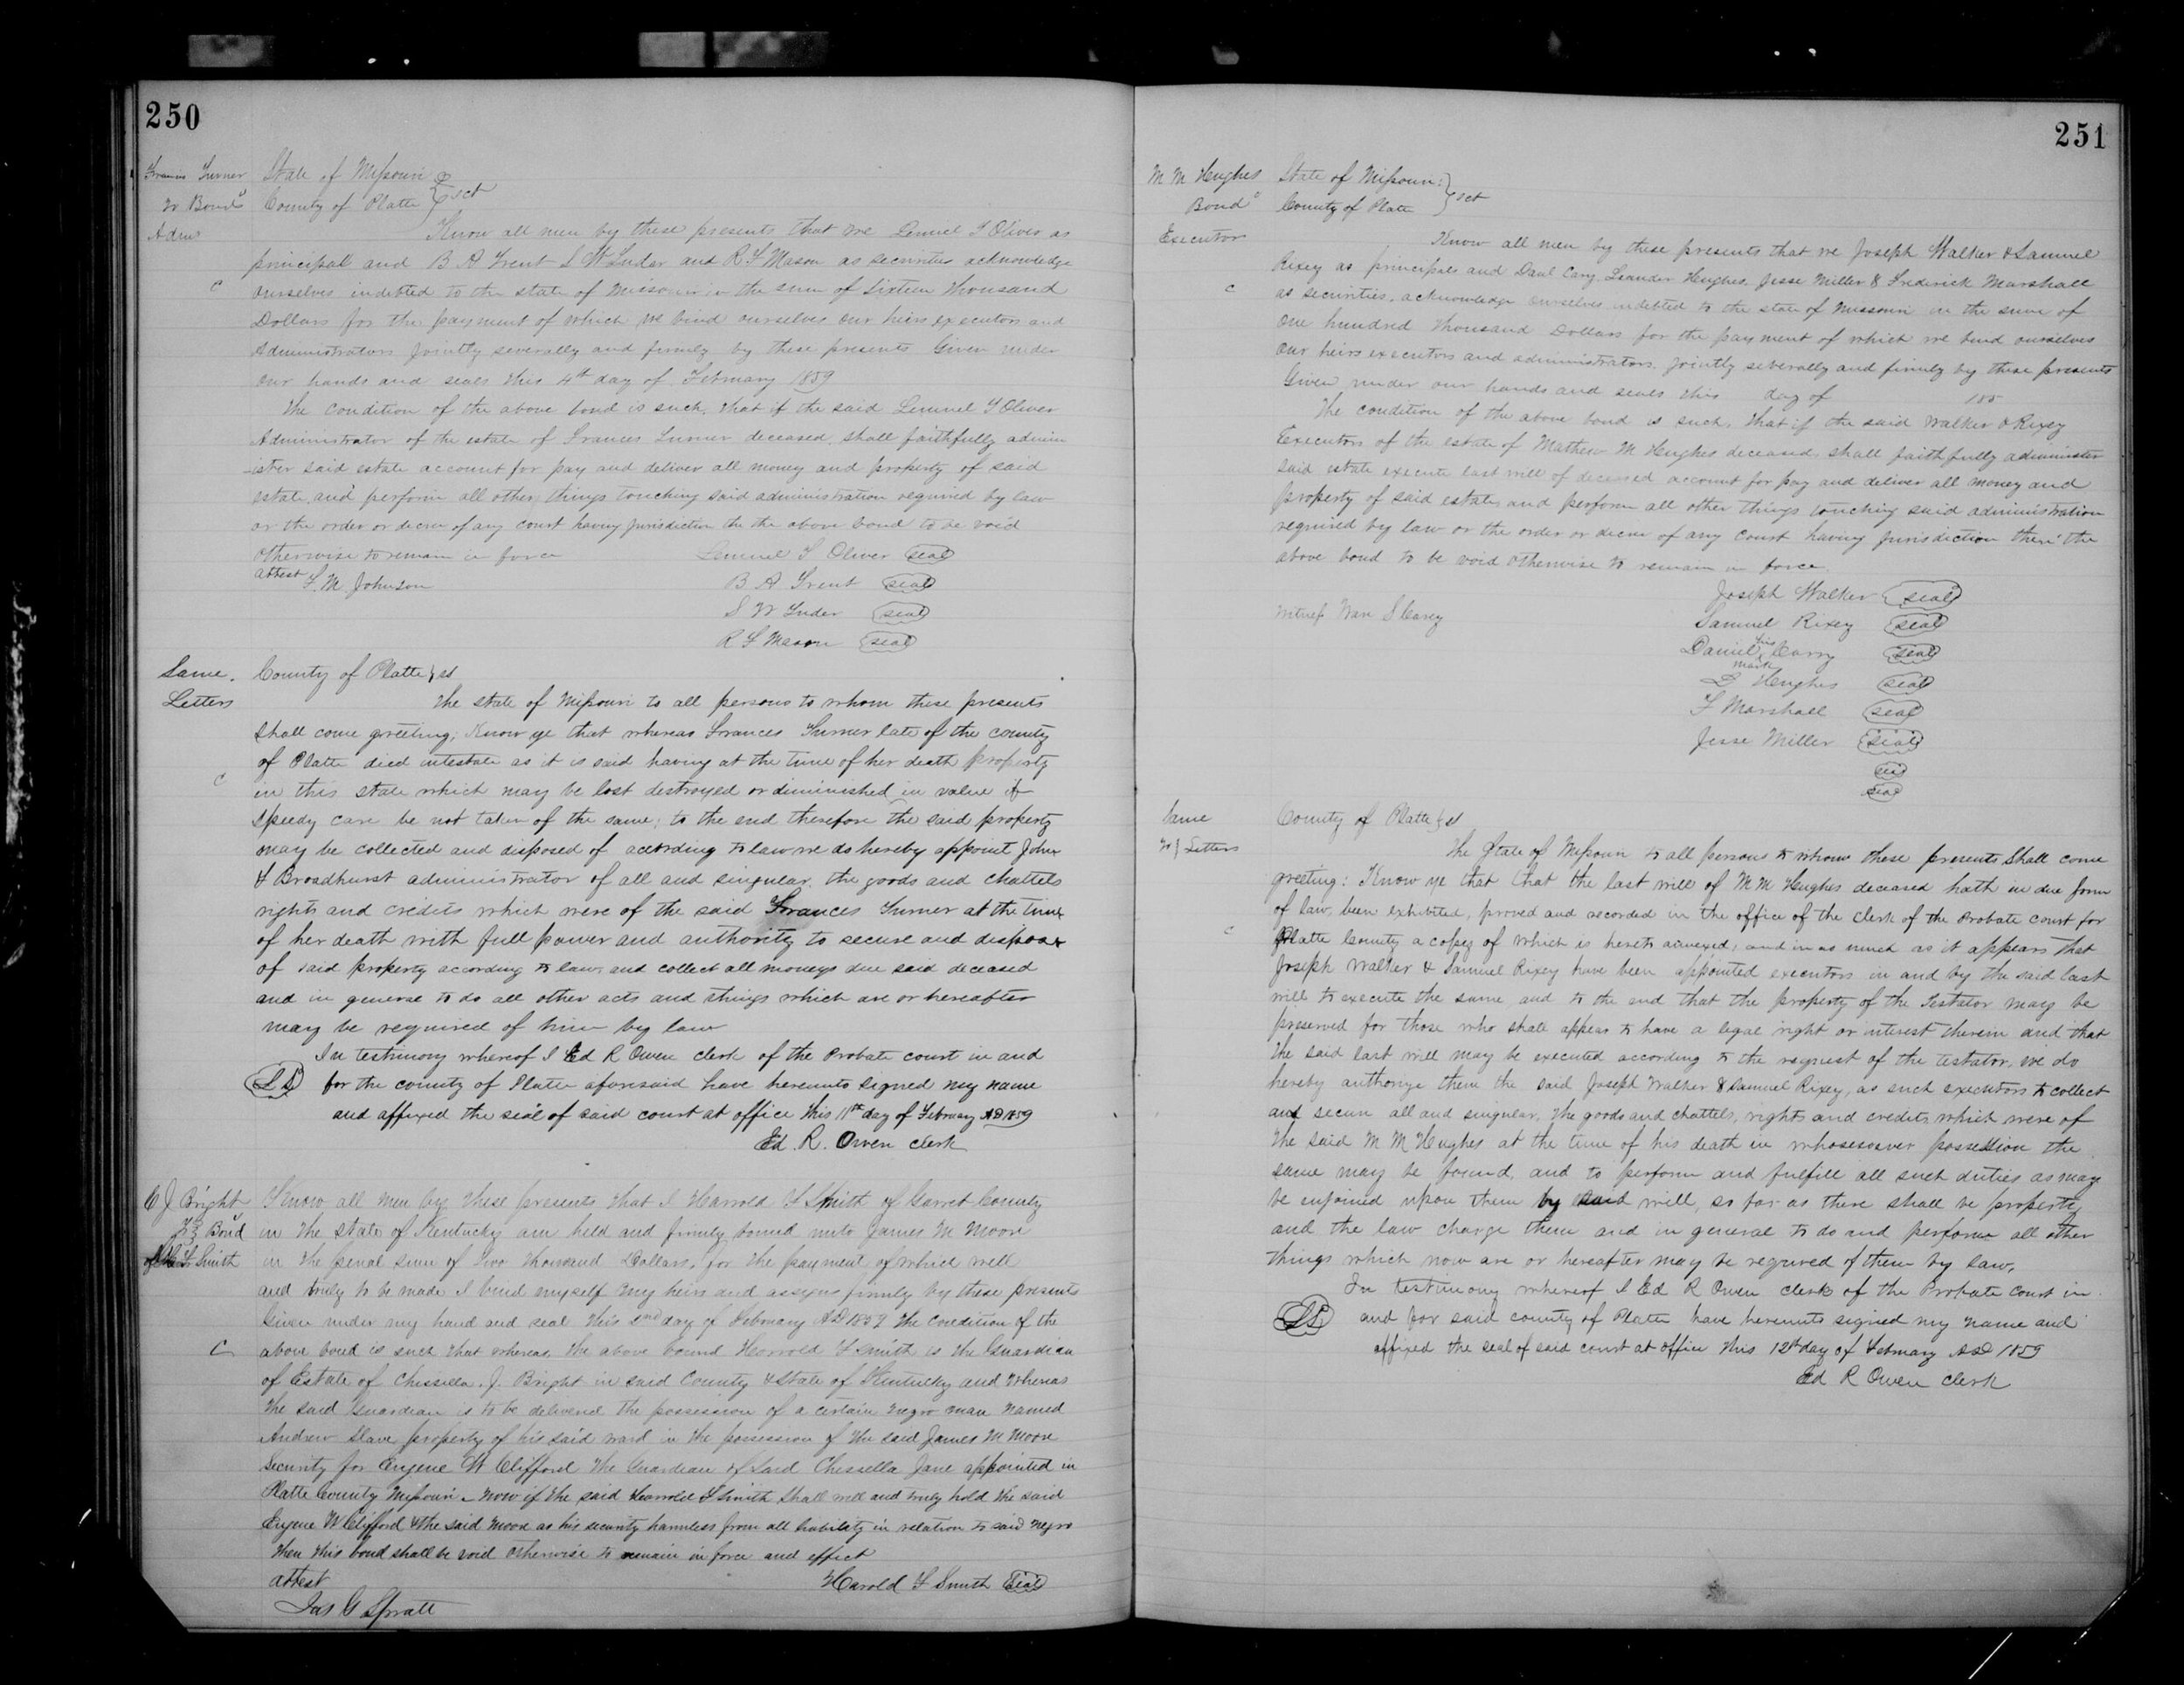 250
Frances Turner
Bond
Admr
State of Missouri
County of Platte } sct
Know all men by these presents that we Lemuel T Oliver as
principal and B A Trent S W Luder and R F Mason as securities acknowledge
ourselves indebted to the state of Missouri in the sum of Sixteen Thousand
Dollars for the payment of which we bind ourselves our heirs executors and
Administrators jointly severally and firmly by these presents Given under
our hands and seals this 4th day of February 1859
The condition of the above bond is such, that if the said Lemuel T Oliver
Administrator of the estate of Frances Turner deceased, shall faithfully admin
-ister said estate account for pay and deliver all money and property of said
estate, and perform all other things touching said administration required by law
or the order or decree of any court having jurisdiction the the above bond to be void
otherwise to remain in force Lemuel T Oliver seal
attest F. M. Johnson B A Trent seal
S W Luder seal
R F Mason seal
Same.
Letters
County of Platte } st
The state of Missouri to all persons to whom these presents
shall come greeting; Know ye that whereas Frances Turner late of the county
of Platte died intestate as it is said having at the time of her death property
in this state which may be lost destroyed or diminished in value if
speedy care be not taken of the same; to the end therefore the said property
may be collected and disposed of according to law we do hereby appoint John
F Broadhurst administrator of all and singular, the goods and chattels
rights and credits which were of the said Frances Turner at the time
of her death with full power and authority to secure and dispose
of said property according to law, and collect all moneys due said deceased
and in general to do all other acts and things which are or hereafter
may be required of him by law
In testimony whereof I Ed R Owen clerk of the Probate court in and
LS for the county of Platte aforesaid have hereunto signed my name
and affixed the seal of said court at office this 11th day of February AD 1859
Ed. R. Owen clerk
C J Bright
Bond
H F Smith
Know all men by these presents that I Harrold F Smith of Garret County
in the state of Kentucky am held and firmly bound unto James M Moore
in the penal sum of Two thousand Dollars, for the payment of which well
and truly to be made I bind myself my heirs and assigns firmly by these presents
Given under my hand and seal this 2nd day of February AD 1859 The condition of the
above bond is such that whereas, the above bound Harrold F Smith is the Guardian
of Estate of Chessella J. Bright in said County & State of Kentucky and Whereas
the said Guardian is to be delivered the possession of a certain negro man named
Andrew Slave property of his said ward in the possession of the said James M Moore
Security for Eugene W Clifford the Guardian of said Chessella Jane appointed in
Platte County Missouri - Now if the said Harrold F Smith shall well and truly hold the said
Eugene W Clifford & the said Moore as his security harmless from all liability in relation to said negro
then this bond shall be void otherwise to remain in force and effect
attest Harold F Smith Seal
Jas G Spratt
251
M M Hughes
Bond
Executor
State of Missouri
County of Platte } sct
Know all men by these presents that we Joseph Walker & Samuel
Rixey as principals and Danl Cary Leander Hughes, Jesse Miller & Frederick Marshall
as securities, acknowledge ourselves indebted to the state of Missouri in the sum of
One hundred thousand Dollars for the payment of which we bind ourselves
our heirs executors and administrators, jointly severally and firmly by these presents
Given under our hands and seals this day of 185
The condition of the above bond is such, that if the said Walker & Rixey
Executors of the estate of Mathew M Hughes deceased, shall faithfully administer
said estate execute last will of deceased account for pay and deliver all money and
property of said estate, and perform all other things touching said administration
required by law or the order or decree of any court having jurisdiction then the
above bond to be void otherwise to remain in force.
Joseph Walker seal
Witness Wan S Carey Samuel Rixey seal
Daniel his mark Carry seal
L Hughes seal
F Marshall seal
Jesse Miller seal
seal
seal
Same
Letters
County of Platte } st
The State of Missouri to all persons to whom these presents shall come
greeting: Know ye that that the last will of M M Hughes deceased hath in due form
of law been exhibited, proved and recorded in the office of the clerk of the Probate court for
Platte County a copy of which is hereto annexed; and in as much as it appears that
Joseph Walker & Samuel Rixey have been appointed executors in and by the said last
will to execute the same and to the end that the property of the Testator may be
preserved for those who shall appear to have a legal right or interest therein and that
the said last will may be executed according to the request of the testator, we do
hereby authorize them the said Joseph Walker & Samuel Rixey, as such executors to collect
and secure all and singular, the goods and chattels, rights and credits which were of
the said M M Hughes at the time of his death in whosesoever possession the
same may be found, and to perform and fulfill all such duties as may
be enjoined upon them by said will, so far as there shall be property
and the law charge them and in general to do and perform all other
things which now are or hereafter may be required of them by law.
In testimony whereof I Ed R Owen clerk of the Probate court in
LS and for said county of Platte have hereunto signed my name and
affixed the seal of said court at office this 12th day of February AD 1859
Ed R Owen clerk